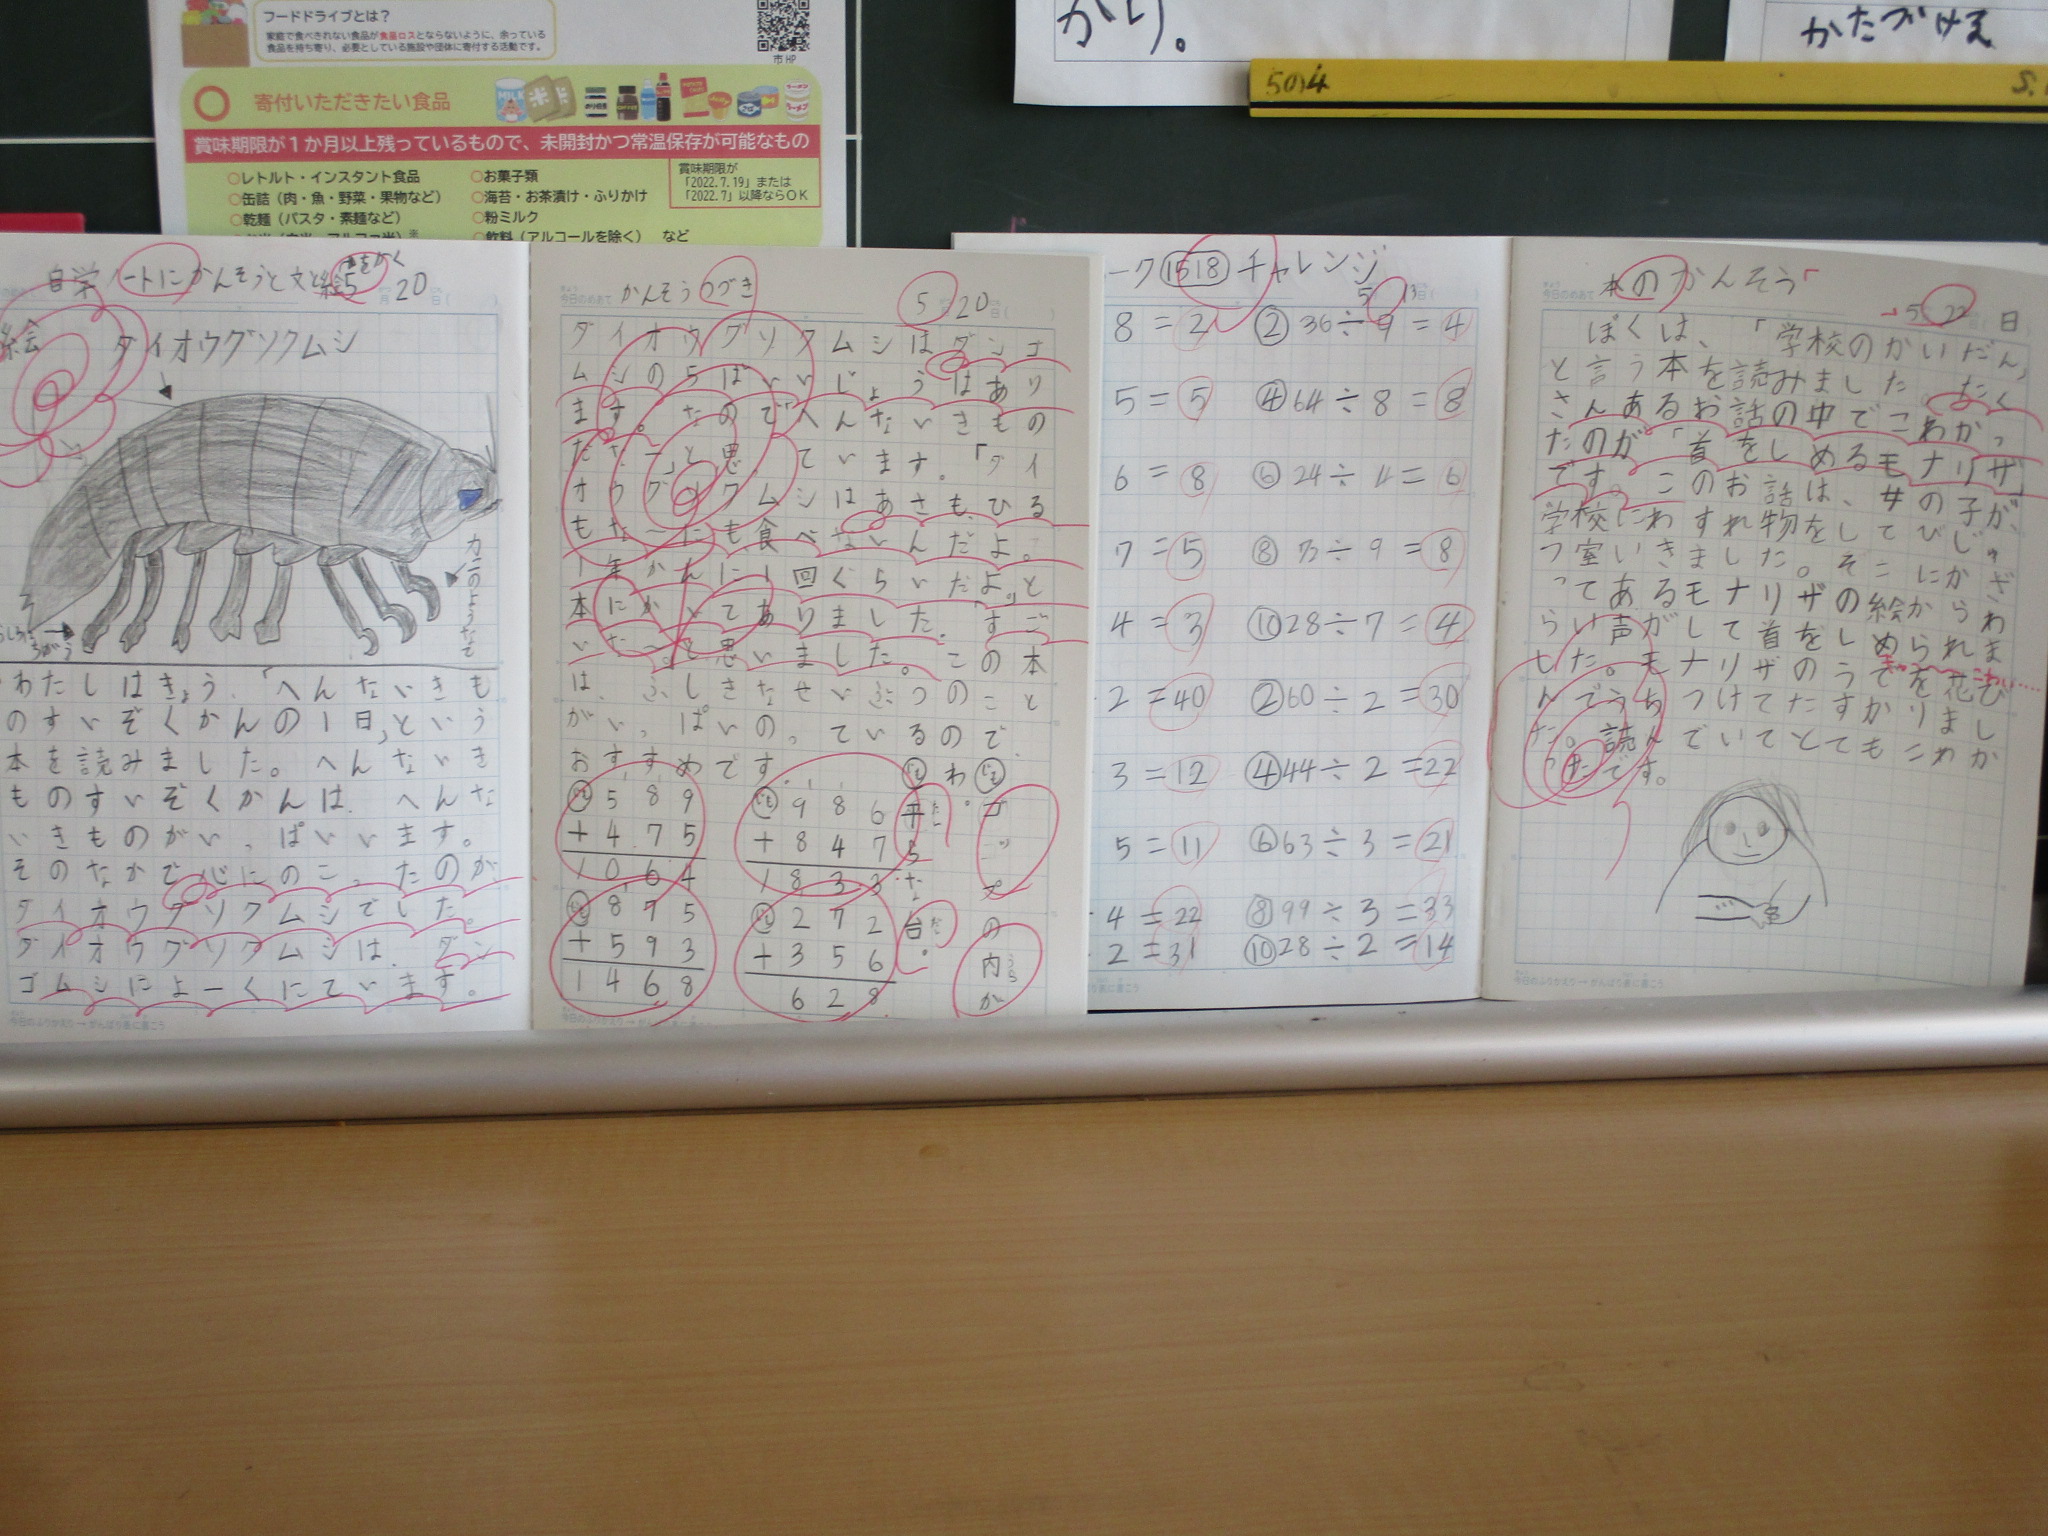 フードドライブとは？
家庭で食べきれない食品が食品ロスとならないように、余っている
食品を持ち寄り、必要としている施設や団体に寄付する活動です。
市HP
寄付いただきたい食品
賞味期限が１か月以上残っているもので、未開封かつ常温保存が可能なもの
○レトルト・インスタント食品
○缶詰（肉・魚・野菜・果物など）
○乾麺（パスタ・素麺など）
○お菓子類
○海苔・お茶漬け・ふりかけ
○粉ミルク
○飲料（アルコールを除く） など
賞味期限が
「2022.7.19」または
「2022.7」以降ならOK
かり。
かたづける
5の4
自学ノートにかんそうと文と絵をかく
5 月 20 日
絵
ダイオウグソクムシ
カニのような手
ちがう
わたしはきょう、「へんないきも
のすいぞくかんの1日」という
本を読みました。へんないき
ものすいぞくかんは、へんな
いきものがいっぱいいます。
そのなかで心にのこったのが
ダイオウグソクムシでした。
ダイオウグソクムシは、ダン
ゴムシによーくにています。
かんそうつづき
5 20
ダイオウグソクムシはダンゴ
ムシの5ばいいじょうはあり
ます。なので「へんないきもの
だな〜」と思っています。「ダイ
オウグソクムシはあさも、ひる
もな〜にも食べないんだよ。
1年かんに1回ぐらいだよ」と
本にかいてありました。「すご
いな〜。」と思いました。この本
は、ふしぎなせいぶつのこと
がいっぱいのっているので、
おすすめです。
589
+475
1064
986
+847
1833
875
+593
1468
272
+356
628
平らな台。
ゴッホの内が
わ。
ーク 15 18 チャレンジ
5 13
8=2 ②36÷9=4
5=5 ④64÷8=8
6=8 ⑥24÷4=6
7=5 ⑧ 73÷9=8
4=3 ⑩28÷7=4
2=40 ②60÷2=30
3=12 ④44÷2=22
5=11 ⑥63÷3=21
4=22 ⑧99÷3=33
2=31 ⑩28÷2=14
本のかんそう
5 22 日
ぼくは、「学校のかいだん」
と言う本を読みました。たく
さんあるお話の中でこわかっ
たのが「首をしめるモナリザ」
です。このお話は、女の子が、
学校にわすれ物をしてびじゅ
つ室いきました。そこにかざ
ってあるモナリザの絵からわ
らい声がして首をしめられま
した。モナリザのうでを花び
んでうちつけてたすかりまし
た。読んでいてとてもこわか
ったです。